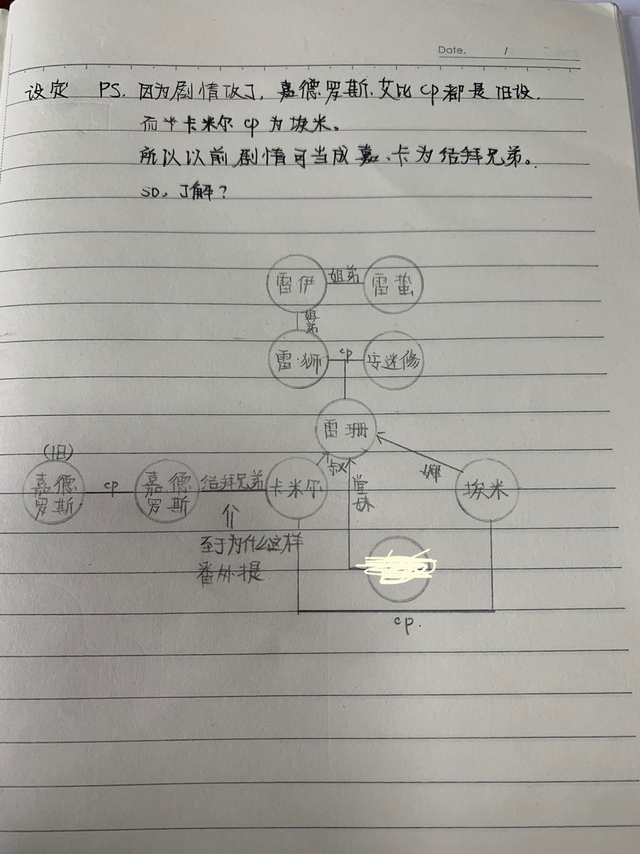 Date. /
设定 PS. 因为剧情改了, 嘉德罗斯.艾比cp都是旧设.
而卡米尔cp为埃米。
所以以前剧情可当成嘉、卡为结拜兄弟。
so, 了解?
雷伊 姐弟 雷蛰
姐弟
雷狮 cp 安迷修
雷珊
(旧)
嘉德罗斯 cp 嘉德罗斯 结拜兄弟 卡米尔 叔 堂妹 埃米
至于为什么这样
番外提
cp.